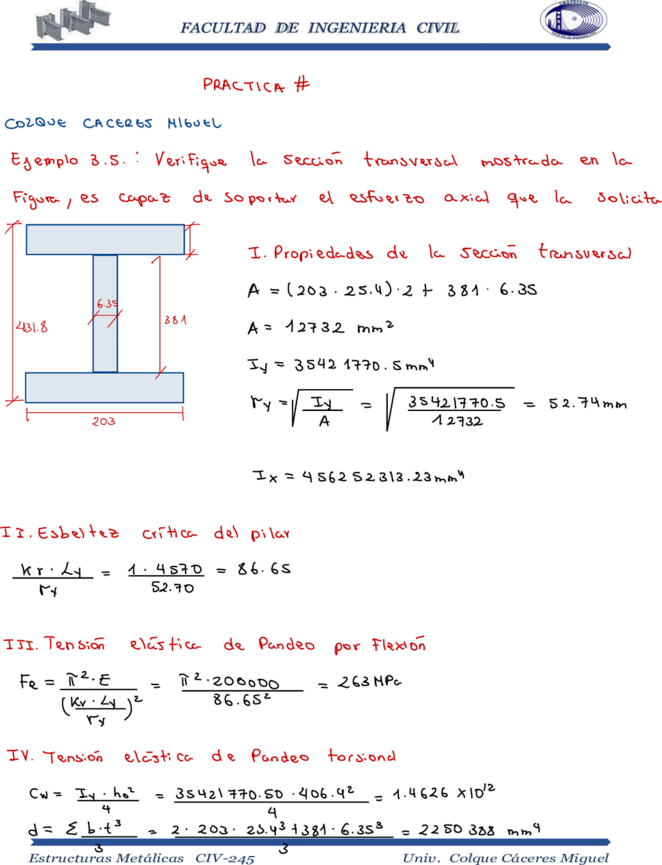 FACULTAD DE INGENIERIA CIVIL
PRACTICA #
COLQUE CACERES MIGUEL
Ejemplo 3.5. : Verifique la sección transversal mostrada en la
Figura, es capaz de soportar el esfuerzo axial que la solicita
431.8
6.35
381
203
I. Propiedades de la sección transversal
A = (203 · 25.4) · 2 + 381 · 6.35
A = 12732 mm²
Iy = 35421770.5 mm⁴
ry = √(Iy / A) = √(35421770.5 / 12732) = 52.74 mm
Ix = 456252313.23 mm⁴
II. Esbeltez crítica del pilar
Kr · Ly / ry = 1 · 4570 / 52.70 = 86.65
III. Tensión elástica de Pandeo por Flexión
Fe = π² · E / (Kv · Ly / ry)² = π² · 200000 / 86.65² = 263 MPa
IV. Tensión elástica de Pandeo torsional
Cw = Iy · ho² / 4 = 35421770.50 · 406.4² / 4 = 1.4626 X10¹²
d = Σ b·t³ / 3 = 2 · 203 · 25.4³ + 381 · 6.35³ / 3 = 2250388 mm⁴
Estructuras Metálicas CIV-245
Univ. Colque Cáceres Miguel